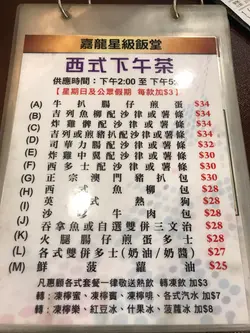 嘉龍星級飯堂
西式下午茶
供應時間：下午2:00 至 下午5:
【星期日及公眾假期 每款加$3】
(A) 牛扒腸仔煎蛋 $34
(B) 吉列魚柳配沙律或薯條 $34
(C) 炸雞髀配沙律或薯條 $34
(D) 吉列或煎豬扒配沙律或薯條 $34
(E) 司華力腸配沙律或薯條 $32
(F) 炸雞中翼配沙律或薯條 $30
(G) 正宗澳門豬扒包 $30
(H) 西式魚柳包 $28
(I) 英式熱狗 $28
(J) 沙嗲牛肉包 $28
(K) 吞拿魚或自選雙拼三文治 $28
(L) 火腿腸仔煎蛋多士 $28
(L) 各式雙拼多士(奶油/奶醬) $27
(M) 鮮菠蘿油 $25
凡惠顧各式套餐一律敬送熱飲 轉凍飲加$3
轉：凍檸蜜、凍檸賓、凍檸啡、各式汽水 加$7
轉：凍檸樂、紅豆冰、什果冰、菠蘿冰 加$8